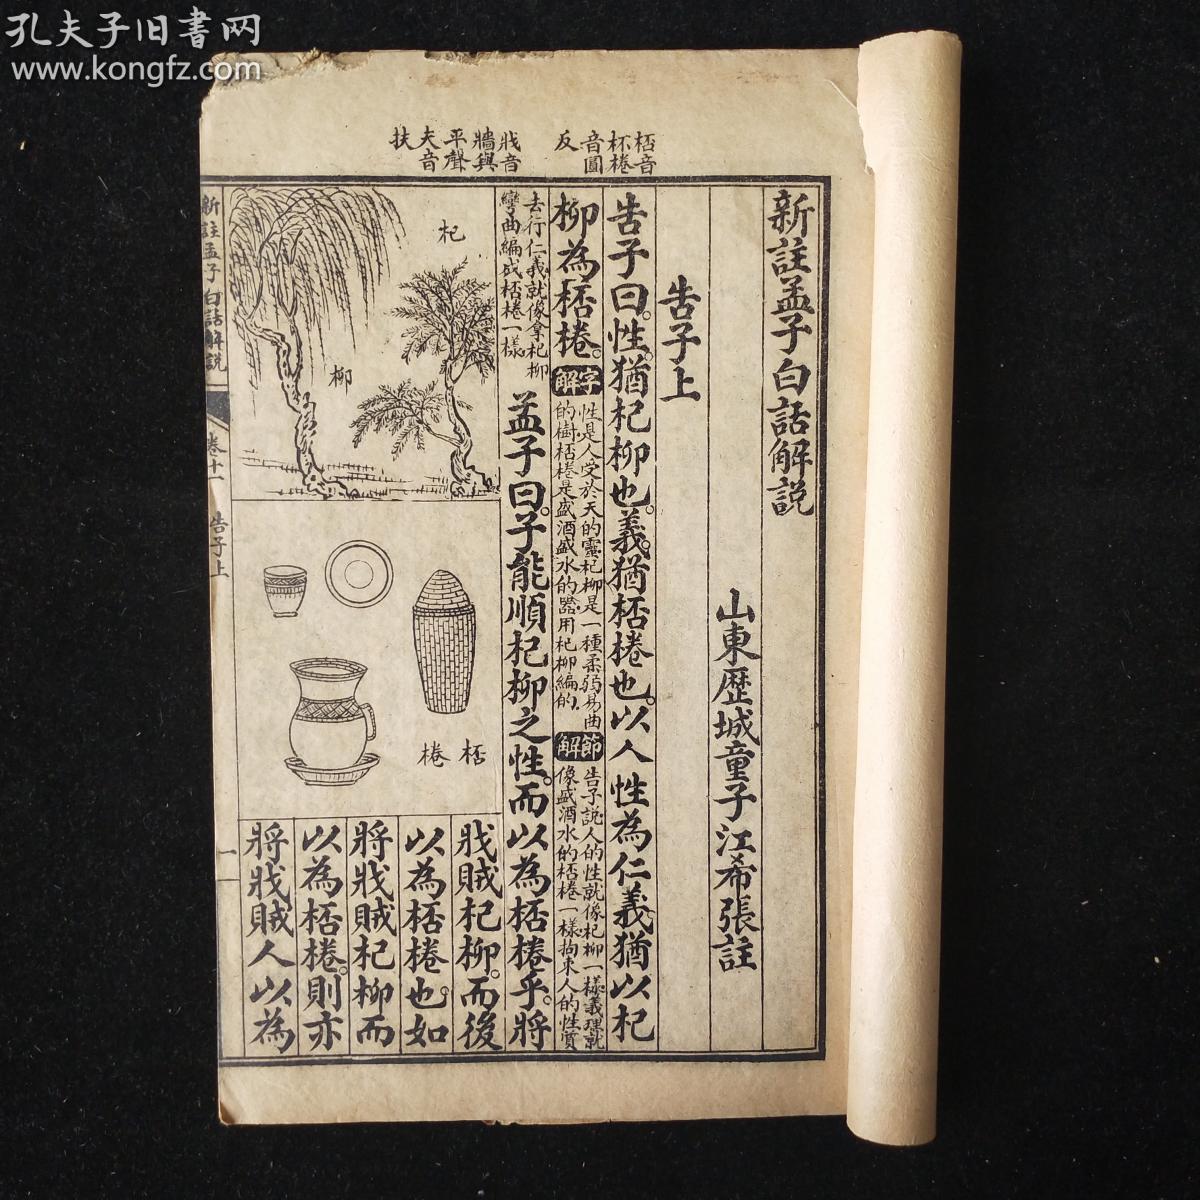 孔夫子旧书网
www.kongfz.com
桮音
杯棬
音圈
反
戕音
牆與
平聲
夫音
扶
新註孟子白話解説
山東歷城童子江希張註
告子上
告子曰。性。猶杞柳也。義。猶桮棬也。以人性為仁義。猶以杞
柳為桮棬。
字解
性是人受於天的靈杞柳是一種柔弱易曲
的樹桮棬是盛酒盛水的器用杞柳編的
節解
告子説人的性就像杞柳一樣義理就
像盛酒水的桮棬一樣拘束人的性質
去行仁義就像拿杞柳
彎曲編成桮棬一樣
孟子曰。子能順杞柳之性。而以為桮棬乎。將
戕賊杞柳。而後
以為桮棬也。如
將戕賊杞柳而
以為桮棬。則亦
將戕賊人以為
杞
柳
桮
棬
新註孟子白話解説
卷十一
告子上
一